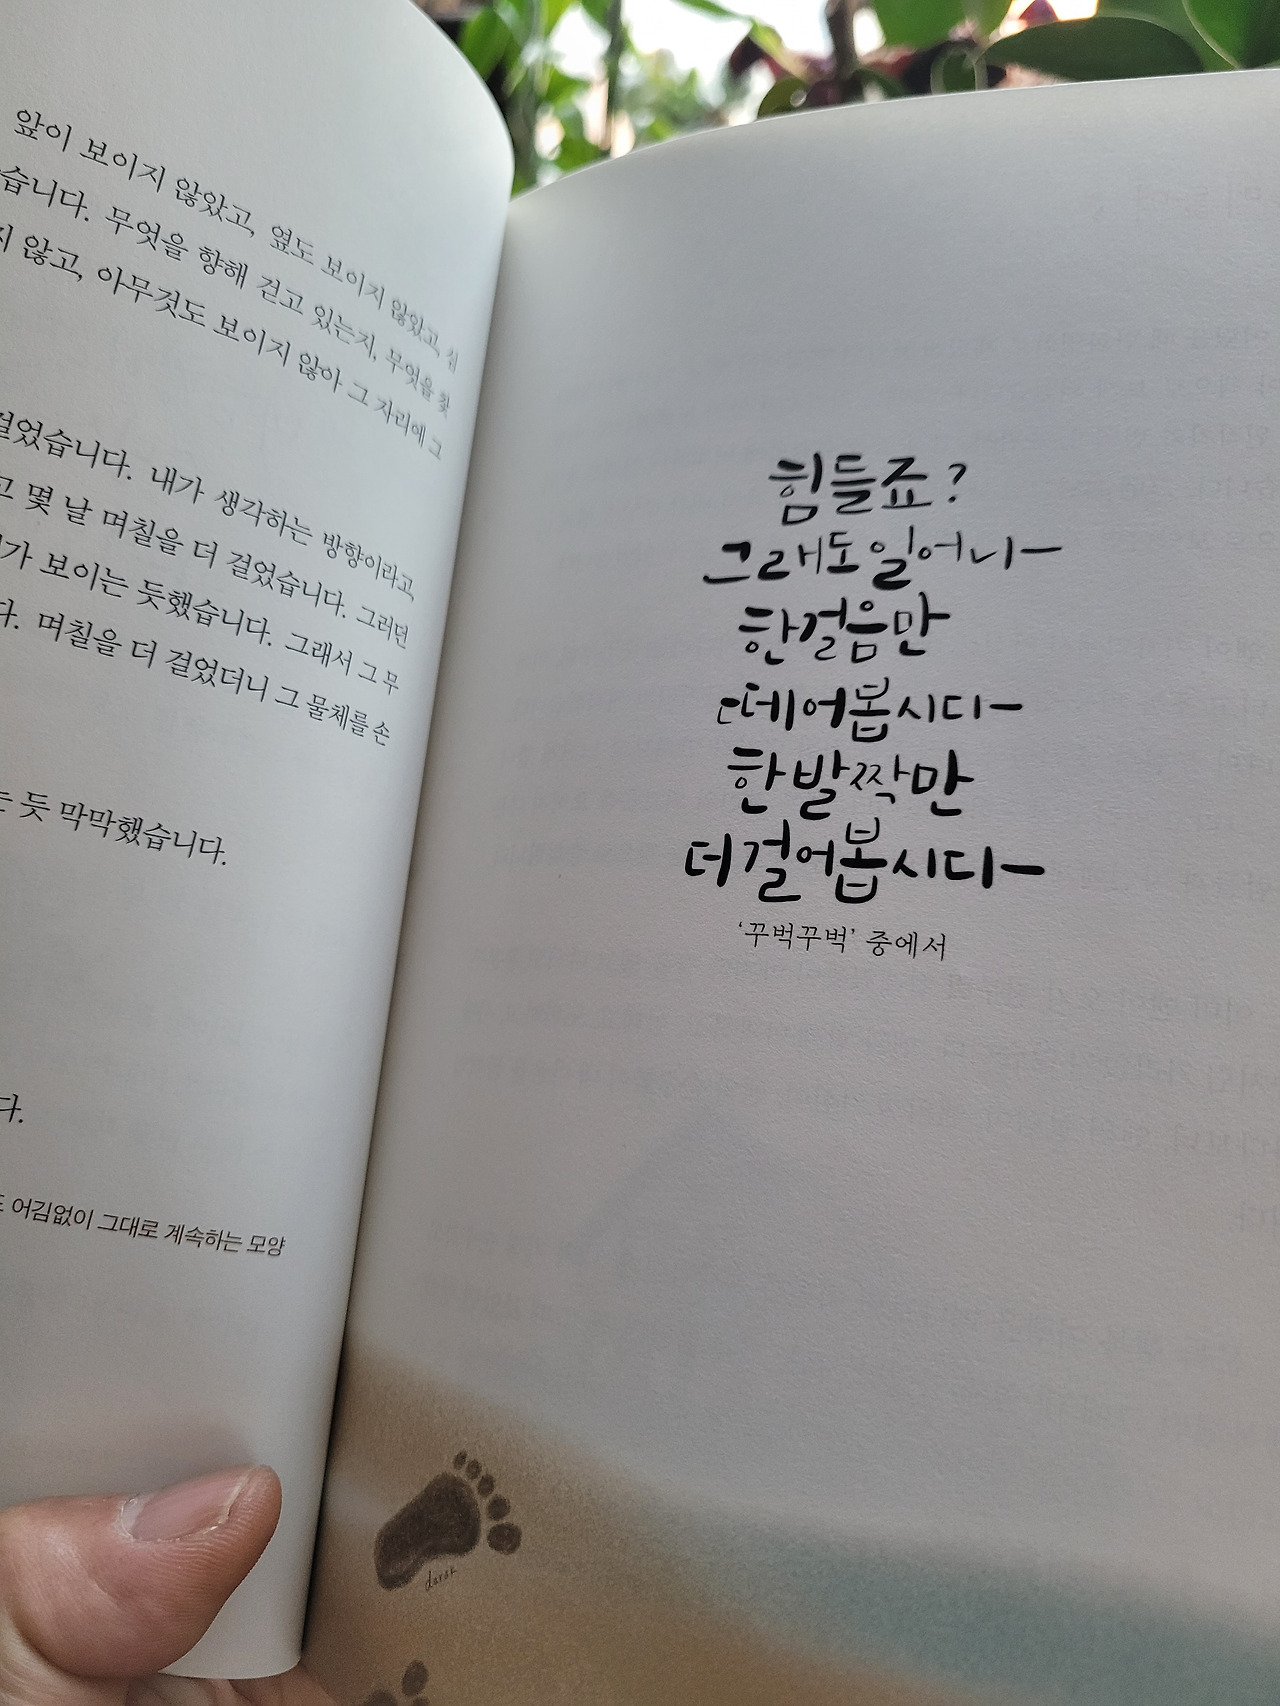 앞이 보이지 않았고, 옆도 보이지 않았고, 심
습니다. 무엇을 향해 걷고 있는지, 무엇을 찾
지 않고, 아무것도 보이지 않아 그 자리에 그
걸었습니다. 내가 생각하는 방향이라고,
고 몇 날 며칠을 더 걸었습니다. 그러던
가 보이는 듯했습니다. 그래서 그 무
다. 며칠을 더 걸었더니 그 물체를 손
는 듯 막막했습니다.
다.
도 어김없이 그대로 계속하는 모양
힘들죠?
그래도 일어나
한걸음만
떼어봅시다
한발짝만
더 걸어봅시다
'꾸벅꾸벅' 중에서
darak